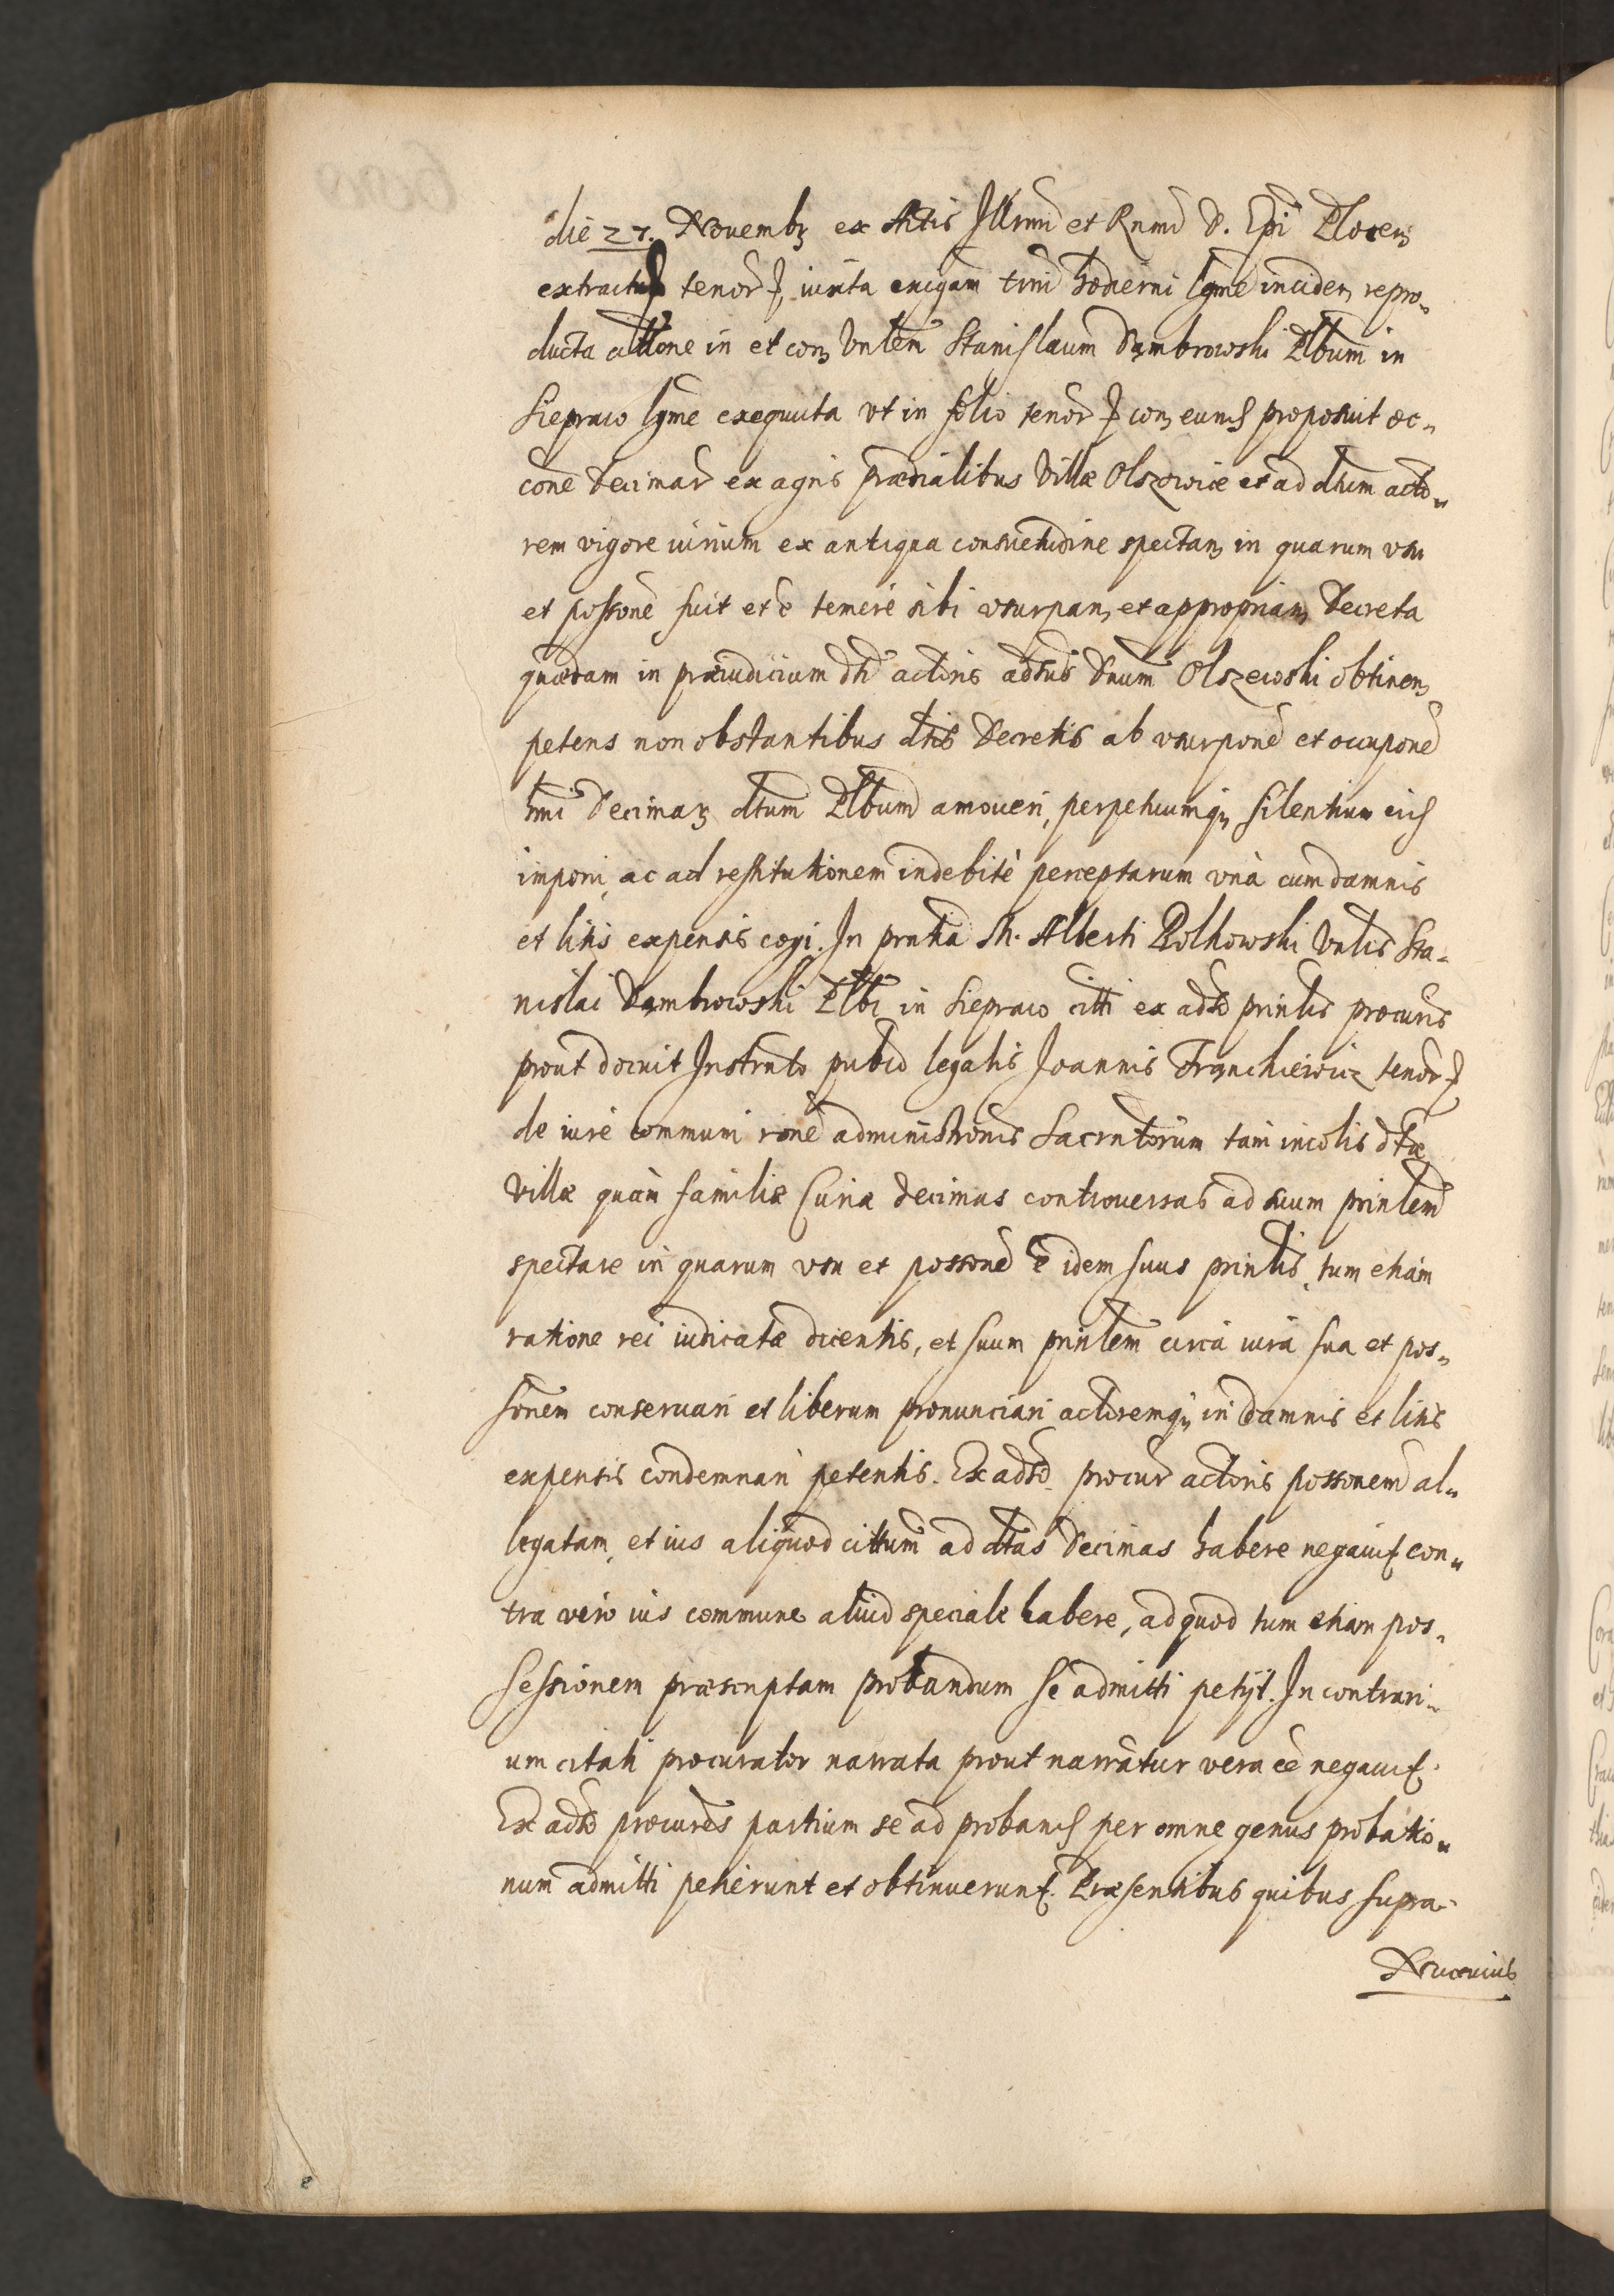 die 27. Nouembȝ ex Actis Jllrmi et Rnmi D. Epi Plocen
extractus tenor, iuxta exigam tmi hodierni lgme inciden repro„
ducta cittone in et con Vnlem Stanislaum Dąmbrowski Plbum in
Siepraw lgme exequuta vt in folio tenor con eund proposuit oc„
cone Decimar ex agris prædialibus Villæ Olszowice et ad dtum acto„
rem vigore iurium ex antiqua consuetudine spectan in quarum vsu
et possone fuit et e temere sibi vsurpan et appropriam Decreta
quædam in præiudicium dti actoris adsus Dnum Olszewski obtinen
petens non obstantibus dtis Decretis ab vsurpone et occupone
hmi Decimar dtum Plbum amoueri, perpetuumqȝ silentium eid
imponi, ac ad restitutionem indebitè perceptarum vnà cum damnis
et litis expensis cogi. Jn pntia M. Alberti Rolkowski Vnlis Sta„
nislai Dąmbrowski Plbi in Sieprawo citti ex adso prinlis procuris
prout docuit Jnstrnto publo legalis Joannis Franckiewicz tenor
de iure communi rone administronis Sacrntorum tam incolis dtæ
Villæ quàm familiæ Curiæ decimas controuersas ad suum prinlem
spectare in quarum vsu et possone e idem suus prinlis, tum etiam
ratione rei iudicatæ dicentis, et suum prinlem circa iura sua et pos„
sonem conseruari et liberum pronunciari actoremqȝ in damnis et litis
expensis condemnari petentis. Ex adso procur actoris possonem al„
legatam, et ius aliquod cittum ad dtas Decimas habere negauit con„
tra vero ius commune aliud speciale habere, ad quod tum etiam pos„
sessionem præscriptam probandum se admitti petijt. Jn contrari„
um citati procurator narrata prout narrantur vera ee negauit.
Ex adso procures partium se ad proband per omne genus probatio„
num admitti petierunt et obtinuerunt. Præsentibus quibus supra.